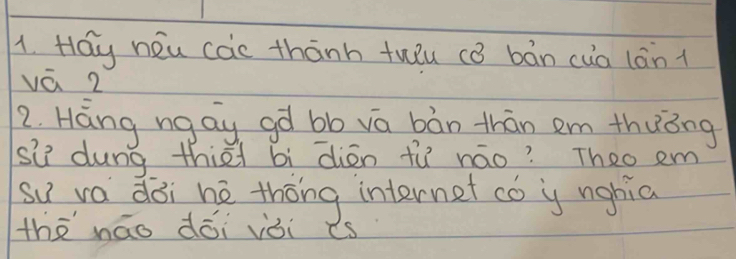 1. Hãy nêu các thành tựu cơ bản của lần 1
và 2
2. Hàng ngày gđ bb và bản thân em thường
sử dụng thiết bị điện tử nào? Theo em
sự ra đời hệ thống internet có ý nghĩa
thế nào đối với cs